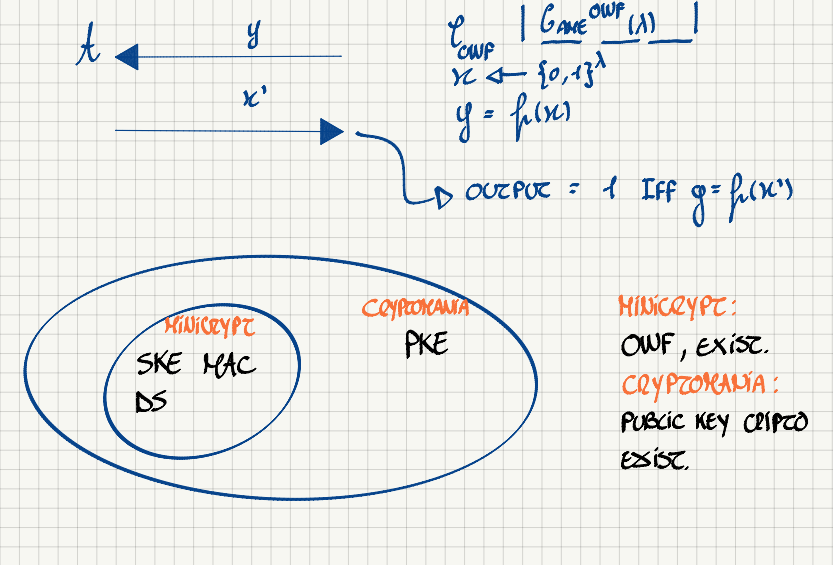 A y C_OWF | GAME^OWF (λ) |
x ← {0,1}^λ
x'
y = f(x)
OUTPUT = 1 IFF y = f(x')
MINICRYPT
SKE MAC
DS
CRYPTOMANIA
PKE
MINICRYPT:
OWF, EXIST.
CRYPTOMANIA:
PUBLIC KEY CRIPTO
EXIST.